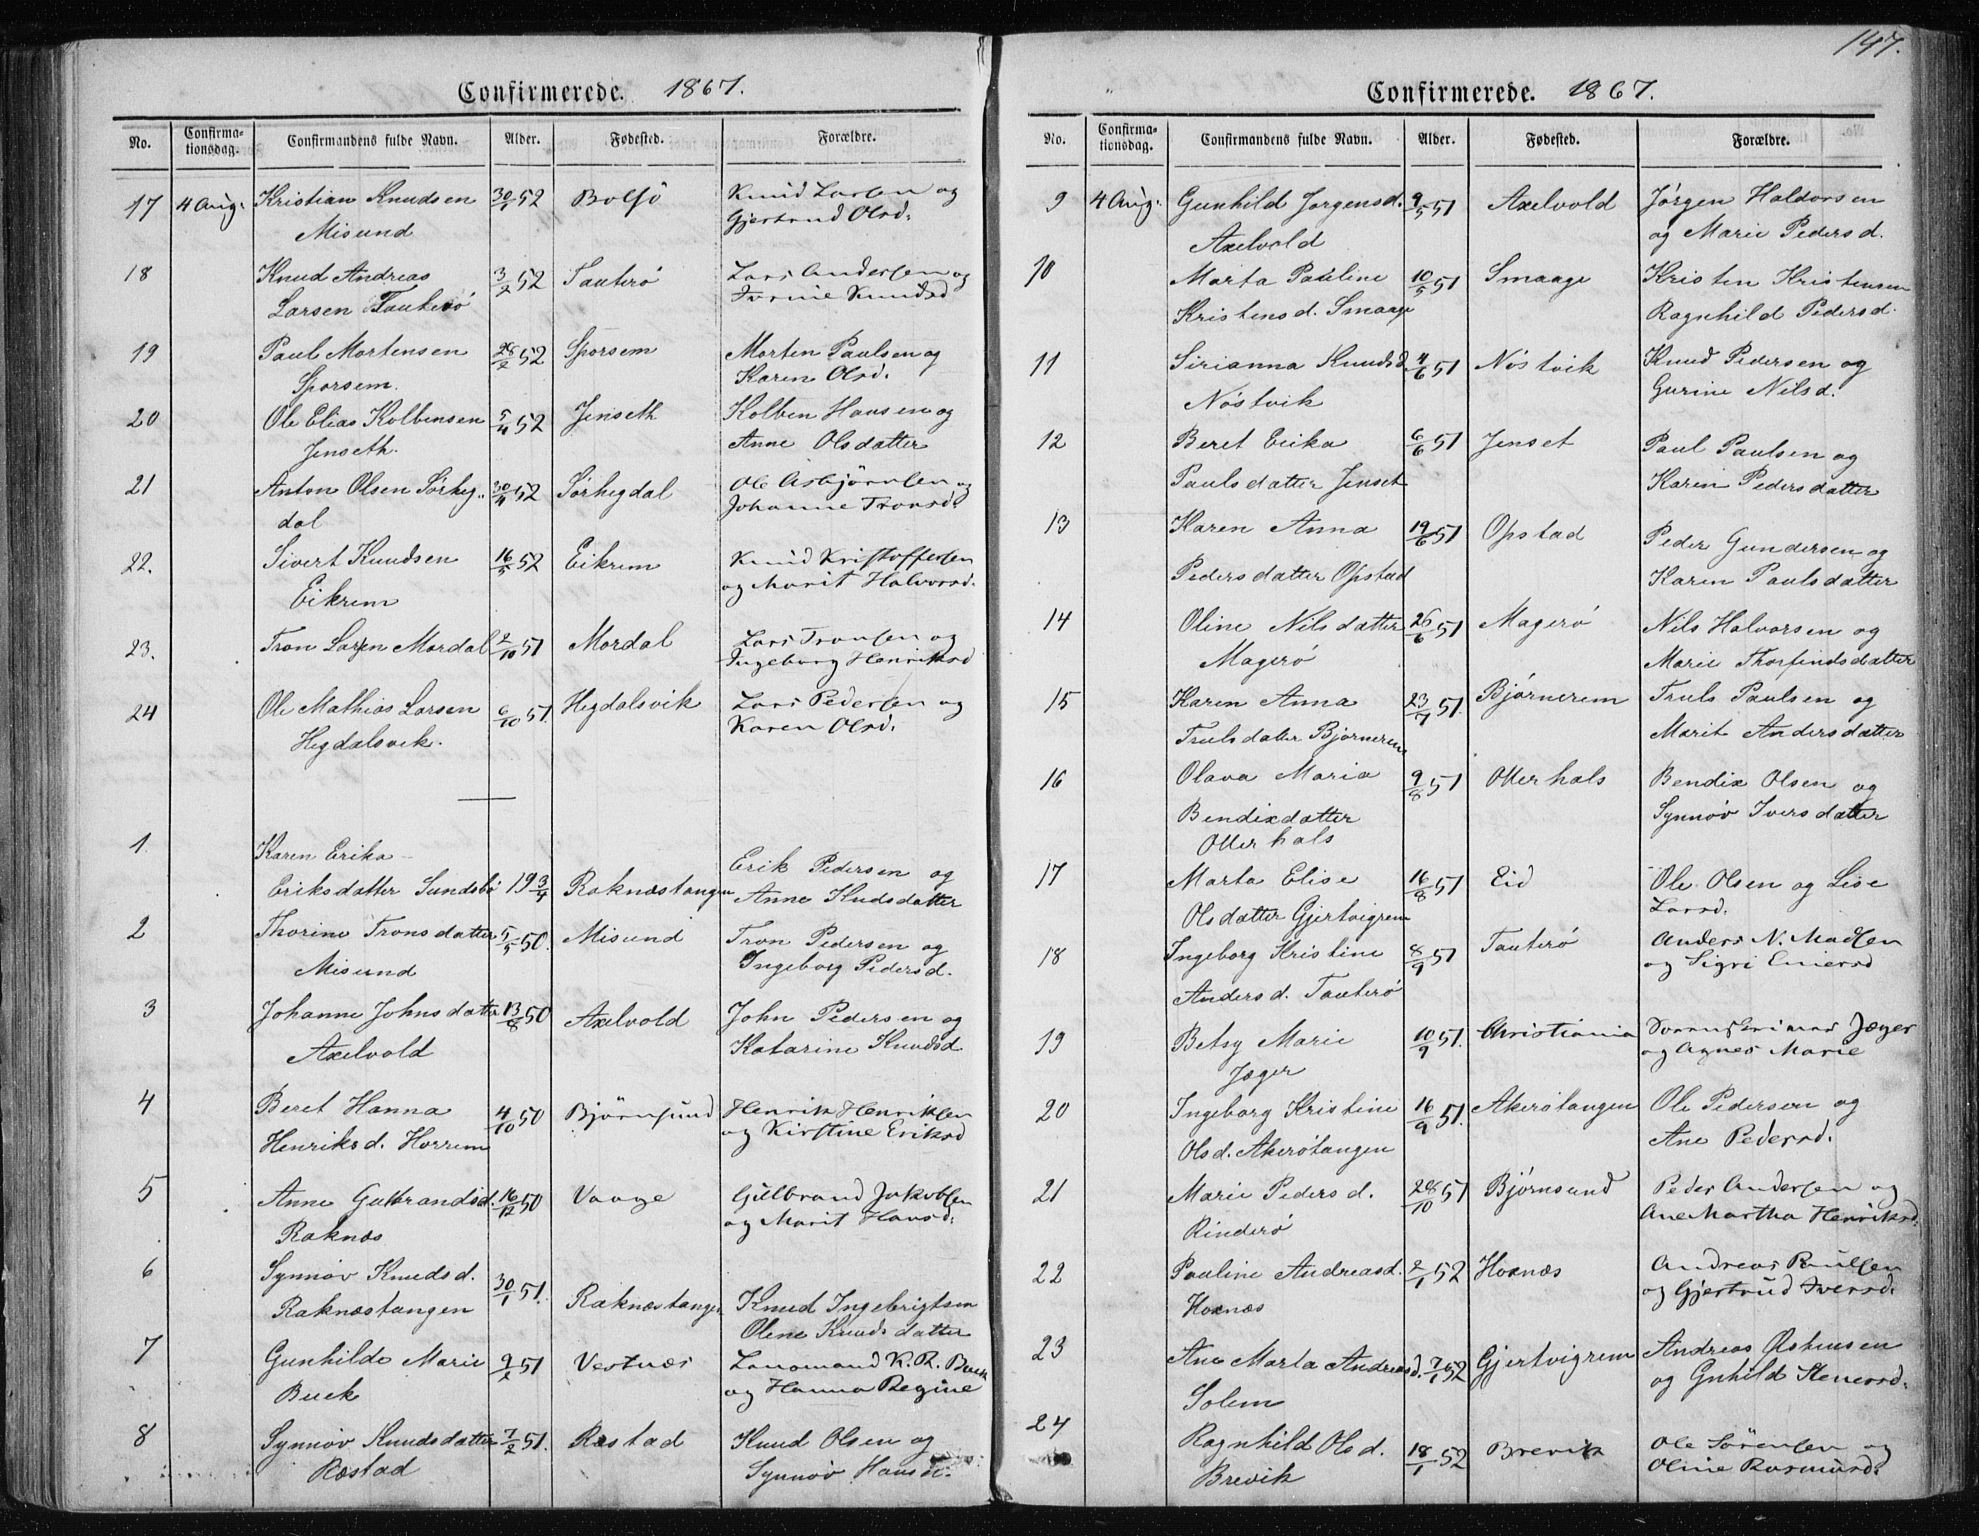 Confirmerede. 1867.
No. Confirmationsdag. Confirmandens fulde Navn. Alder. Fødested. Forældre.
17 4 Aug. Kristian Knudsen 30/1 52 Bolsö Knud Larsen og
Misund Gjertrud Olsd.
18 Knud Andreas 3/2 52 Tauterö Lars Andersen og
Larsen Tauterö Ivrine Knudsd
19 Paul Mortensen 28/2 52 Sporsem Morten Paulsen og
Sporsem. Karen Olsd.
20 Ole Elias Kolbensen 5/4 52 Jenseth Kolben Hansen og
Jenseth. Anne Olsdatter
21 Anton Olsen Sörheg- 30/4 52 Sörhegdal Ole Asbjörnsen og
dal Johanne Tronsd.
22. Sivert Knudsen 16/5 52 Eikrem Knud Kristoffersen
Eikrem og Marit Halvorsd.
23. Tron Larsen Mordal 2/10 51 Mordal Lars Tronsen og
Ingeborg Henriksd
24 Ole Mathias Larsen 6/10 51 Hegdalsvik Lars Pedersen og
Hegdalsvik. Karen Olsd.
1 Karen Erika Erik Pedersen og
Eriksdatter Sundsbö 19 3/4 Raknæstangen Anne Knudsdatter
2 Thorine Tronsdatter 5/5 50. Misund Tron Pedersen og
Misund Ingeborg Pedersd.
3 Johanne Johnsdatter 13/8 50 Axelvold John Pedersen og
Axelvold Katarine Knudsd
4 Beret Hanna 4/10 50 Björnsund Henrik Henriksen
Henriksd. Horrem og Kirstine Eriksd
5 Anne Gulbrandsd. 16/12 50 Vaage Gulbrand Jakobsen
Raknæs og Marit Hansd.
6 Synnöv Knudsd. 30/1 51.
Raknæstangen Raknæstangen Knud Ingebrigtsen
Olene Knudsdatter
7 Gunhilde Marie 9/2 51 Vestnæs Lensmand K. R. Buck
Buck og Hanna Regine
8 Synnöv Knudsdatter 7/2 51. Ræstad Knud Olsen og
Ræstad Synnöv Hansd.
147.
Confirmerede. 1867.
No. Confirmationsdag. Confirmandens fulde Navn. Alder. Fødested. Forældre.
9 4 Aug. Gunhild Jorgensd. 9/5 51 Axelvold Jörgen Haldorsen
Axelvold og Marie Pedersd.
10 Marta Pauline 10/5 51 Smaage Kristen Kristensen
Kristensd. Smaage Ragnhild Pedersd.
11 Sirianna Knudsd. 4/6 51 Nöstvik Knud Pedersen og
Nöstvik Gurine Nilsd.
12 Beret Erika 6/6 51 Jenset Paul Paulsen og
Paulsdatter Jenset Karen Pedersdatter
13 Karen Anna 19/6 51 Opstad Peder Gundersen og
Pedersdatter Opstad Karen Paulsdatter
14 Oline Nilsdatter 26/6 51 Magerö Nils Halvorsen og
Magerö Marie Thorfindsdatter
15 Karen Anna 23/7 51. Björnerem Truls Paulsen og
Trulsdatter Björnerem Marit Andersdatter
16 Olava Maria 9/8 51 Otterhals Bendix Olsen og
Bendixdatter Synnöv Iversdatter
Otterhals
17 Marta Elise 16/8 51 Eid Ole Olsen og Lise
Olsdatter Gjertvigrem Larsd.
18 Ingeborg Kristine 8/9 51 Tauterö Anders N. Madsen
Andersd. Tauterö og Sigri Einersd
19 Betsy Marie 10/9 51. Christiania Jæger
Jæger og Agnes Marie
20 Ingeborg Kristine 16/9 51. Akerötangen Ole Pedersen og
Olsd. Akerötangen Ane Pedersd.
21 Marie Pedersd. 28/10 51 Björnsund Peder Andersen og
Rinderö Ane Martha Henriksd.
22 Pauline Andreasd. 2/1 52 Hoxnæs Andreas Paulsen
Hoxnæs og Gjertrud Iversd.
23 Ane Marta Andreasd. 7/1 52 Gjertvigrem Andreas Östensen
Solem og Gnhild Stenersd.
24 Ragnhild Olsd. 18/1 52 Brevik Ole Sörensen og
Brevik Oline Rasmusd.